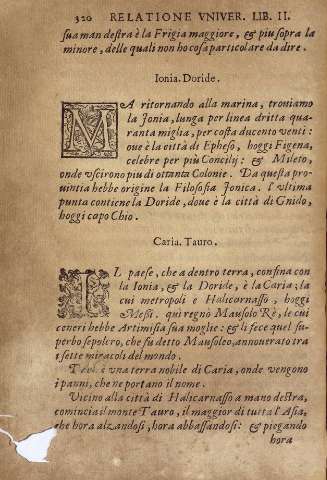 320 RELATIONE VNIVER. LIB. II.
sua man destra è la Frigia maggiore, & piu sopra la
minore, delle quali non ho cosa particolare da dire.
Ionia. Doride.
MA ritornando alla marina, trouiamo
la Ionia, lunga per linea dritta qua-
ranta miglia, per costa ducento venti:
oue è la città di Epheso, hoggi Figena,
celebre per più Concilij: & Mileto,
onde vscirono piu di ottanta Colonie. Da questa pro-
uintia hebbe origine la Filosofia Ionica. l'vltima
punta contiene la Doride, doue è la città di Gnido,
hoggi capo Chio.
Caria. Tauro.
IL paese, che a dentro terra, confina con
la Ionia, & la Doride, è la Caria; la
cui metropoli e Halicarnasso, hoggi
Mesi. qui regnò Mausolo Rè, le cui
ceneri hebbe Artimisia sua moglie: & li fece quel su-
perbo sepolcro, che fu detto Mausoleo, annouerato tra
i sette miracoli del mondo.
è vna terra nobile di Caria, onde vengono
i panni, che ne portano il nome.
Vicino alla città di Halicarnasso a mano destra,
comincia il monte Tauro, il maggior di tutta l'Asia,
che hora alzandosi, hora abbassandosi: & piegando
hora